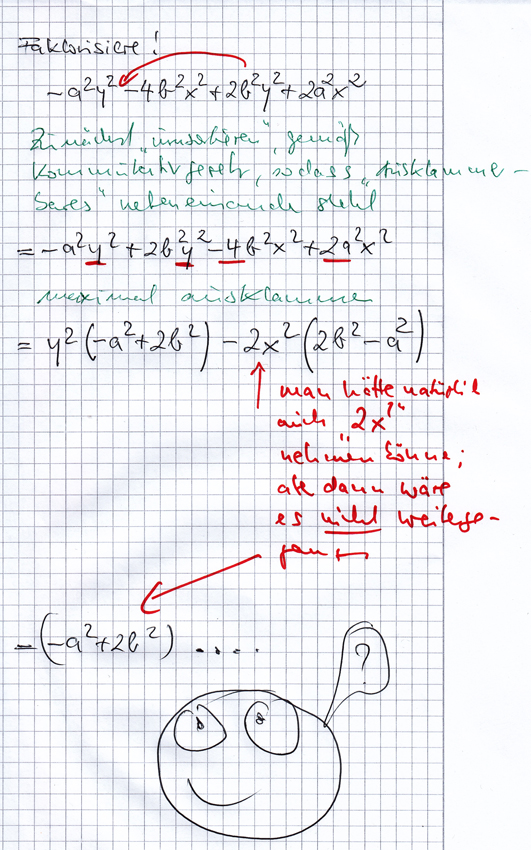 Faktorisiere!
-a²y² -4b²x² +2b²y² +2a²x²
Zunächst „umsortieren", gemäß
Kommutativgesetz, sodass „Ausklammer-
bares" nebeneinander steht
= -a²y² +2b²y² -4b²x² +2a²x²
maximal ausklammern
= y²(-a²+2b²) -2x²(2b²-a²)
man hätte natürlich
auch „2x²"
nehmen können;
dann wäre
es nicht weiterge-
= (-a²+2b²) ....
?